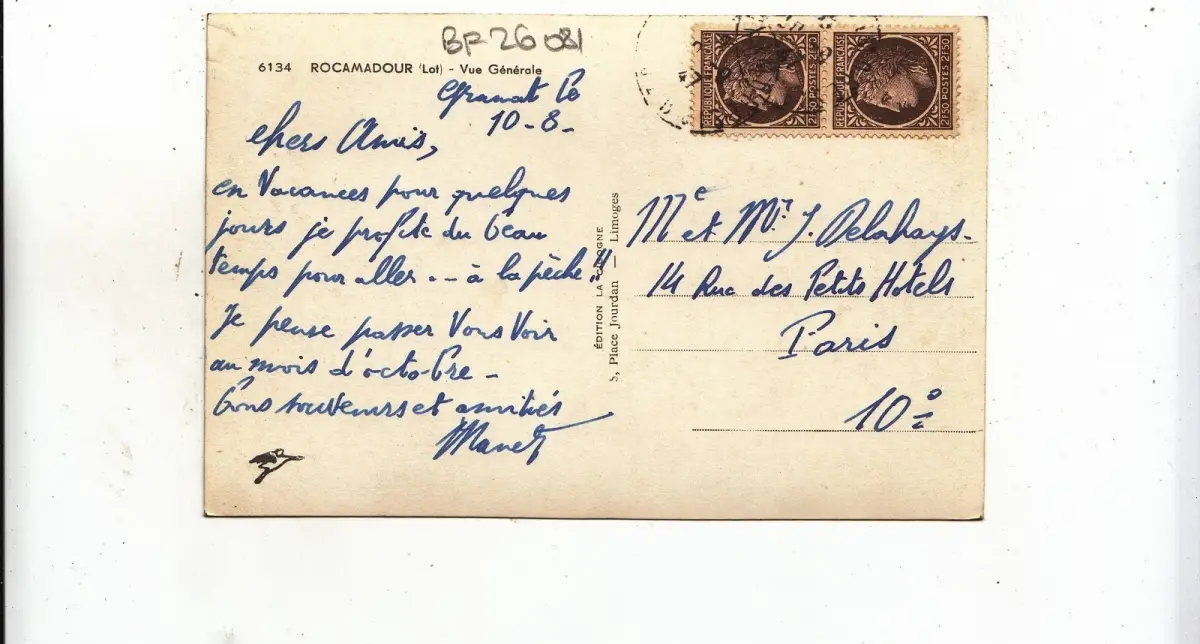 BF 26 081
6134 ROCAMADOUR (Lot) - Vue Générale
Gramat le
10-8-
chers Amis,
en Vacances pour quelques
jours je profite du beau
temps pour aller .-- à la pêche!!
Je pense passer Vous Voir
au mois d'octobre -
Bons souvenirs et amitiés
ÉDITION LA CIGOGNE
5, Place Jourdan — Limoges
RÉPUBLIQUE FRANÇAISE
2F.50 POSTES 2F.50
RÉPUBLIQUE FRANÇAISE
2F.50 POSTES 2F.50
Me et Mr J. Delahays-
14 Rue des Petits Hotels
Paris
10e